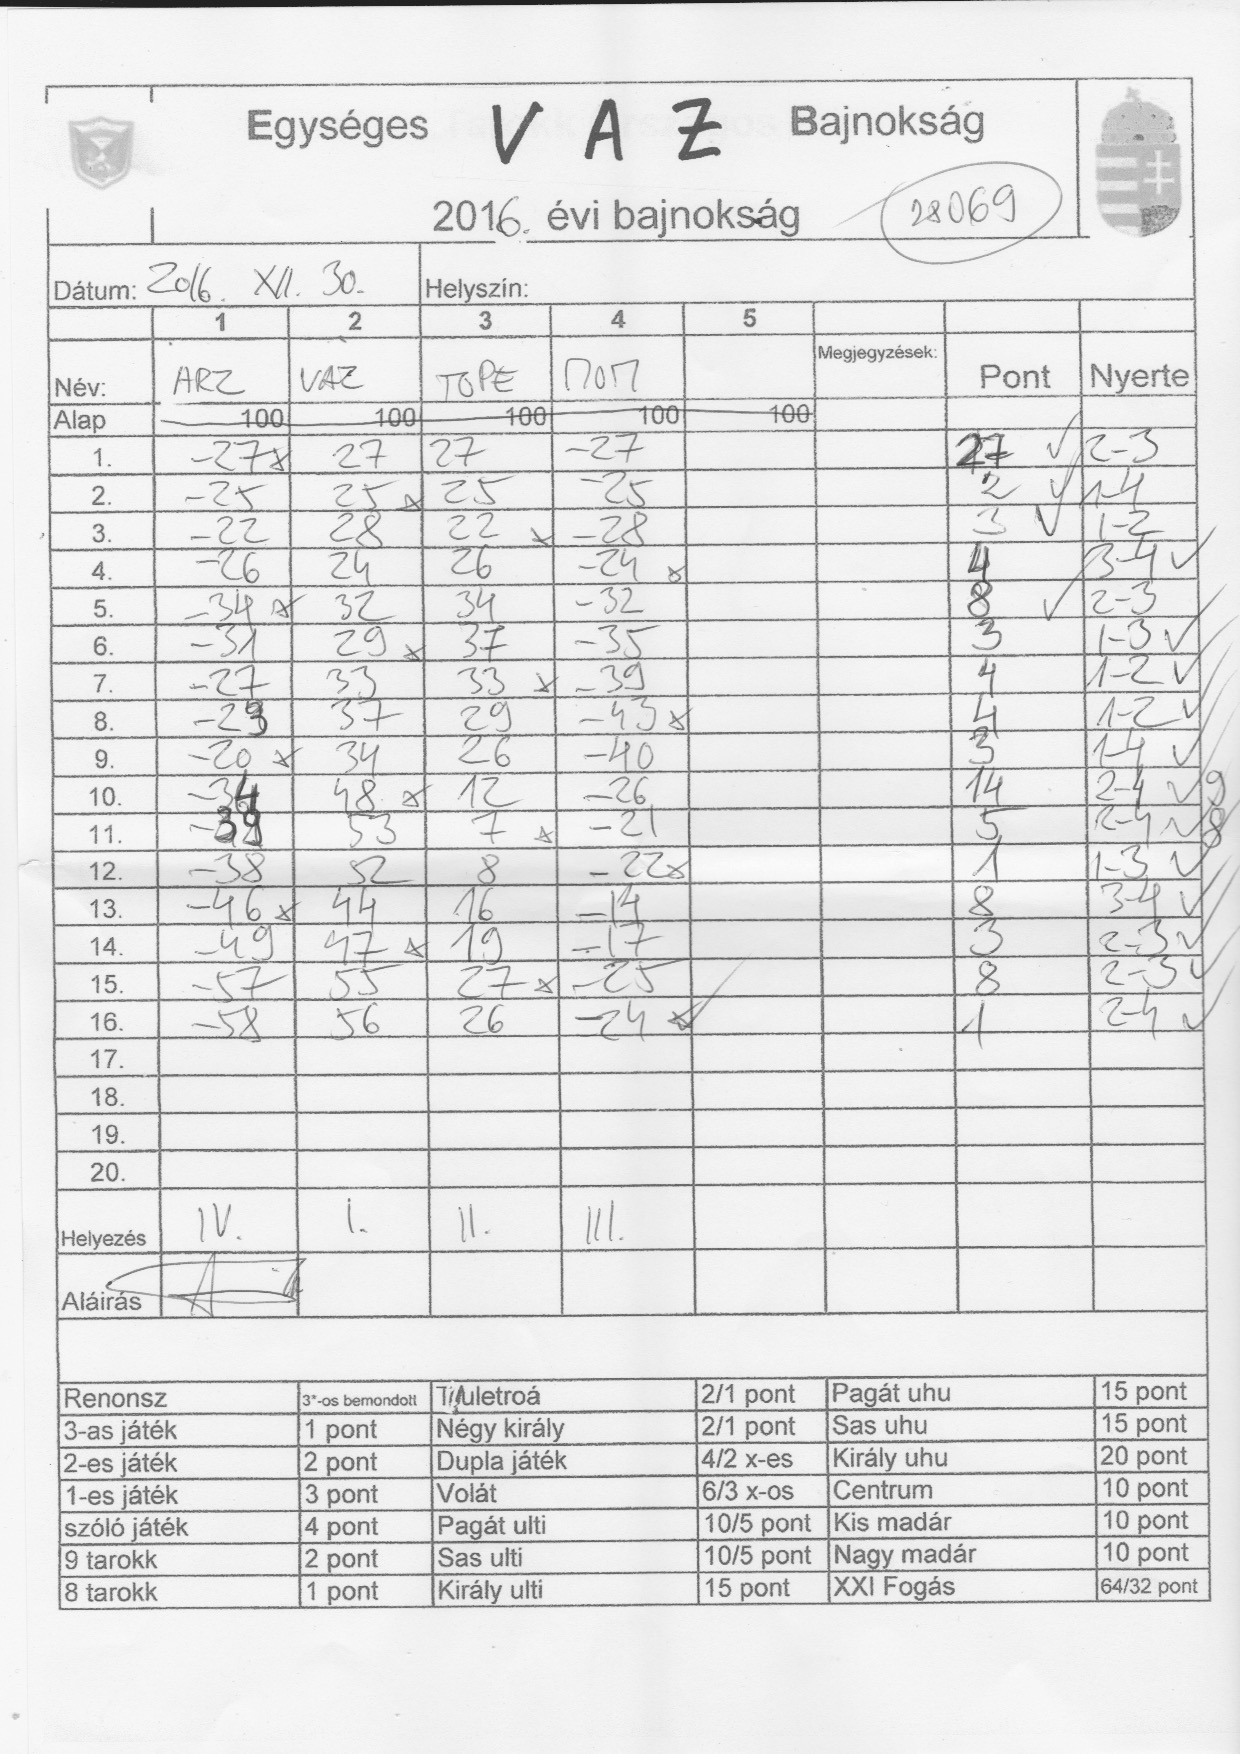 Egységes VAZ Bajnokság
2016. évi bajnokság 28069
Dátum: 2016. XII. 30. Helyszín:
1 2 3 4 5
Név: ARZ VAZ TOPE ПОП Megjegyzések: Pont Nyerte
Alap 100 100 100 100 100
1. -27x 27 27 -27 27 ✓ 2-3
2. -25 25x 25 -25 2 ✓ 1-4
3. -22 28 22 x -28 3 ✓ 1-2
4. -26 24 26 -24 x 4 3-4 ✓
5. -34 x 32 34 -32 8 ✓ 2-3
6. -31 29 x 37 -35 3 1-3 ✓
7. -27 33 33 x -39 4 1-2 ✓
8. -23 37 29 -43x 4 1-2 ✓
9. -20 x 34 26 -40 3 1-4 ✓
10. -34 48 x 12 -26 14 2-4 ✓ 9
11. -39 53 7 x -21 5 2-4 ✓ 8
12. -38 52 8 -22x 1 1-3 ✓
13. -46 x 44 16 -14 8 3-4 ✓
14. -49 47 x 19 -17 3 2-3 ✓
15. -57 55 27 x -25 8 2-3 ✓
16. -58 56 26 -24 x 1 2-4 ✓
17.
18.
19.
20.
Helyezés IV. I. II. III.
Aláirás
Renonsz 3*-os bemondott Tuletroá 2/1 pont Pagát uhu 15 pont
3-as játék 1 pont Négy király 2/1 pont Sas uhu 15 pont
2-es játék 2 pont Dupla játék 4/2 x-es Király uhu 20 pont
1-es játék 3 pont Volát 6/3 x-os Centrum 10 pont
szóló játék 4 pont Pagát ulti 10/5 pont Kis madár 10 pont
9 tarokk 2 pont Sas ulti 10/5 pont Nagy madár 10 pont
8 tarokk 1 pont Király ulti 15 pont XXI Fogás 64/32 pont